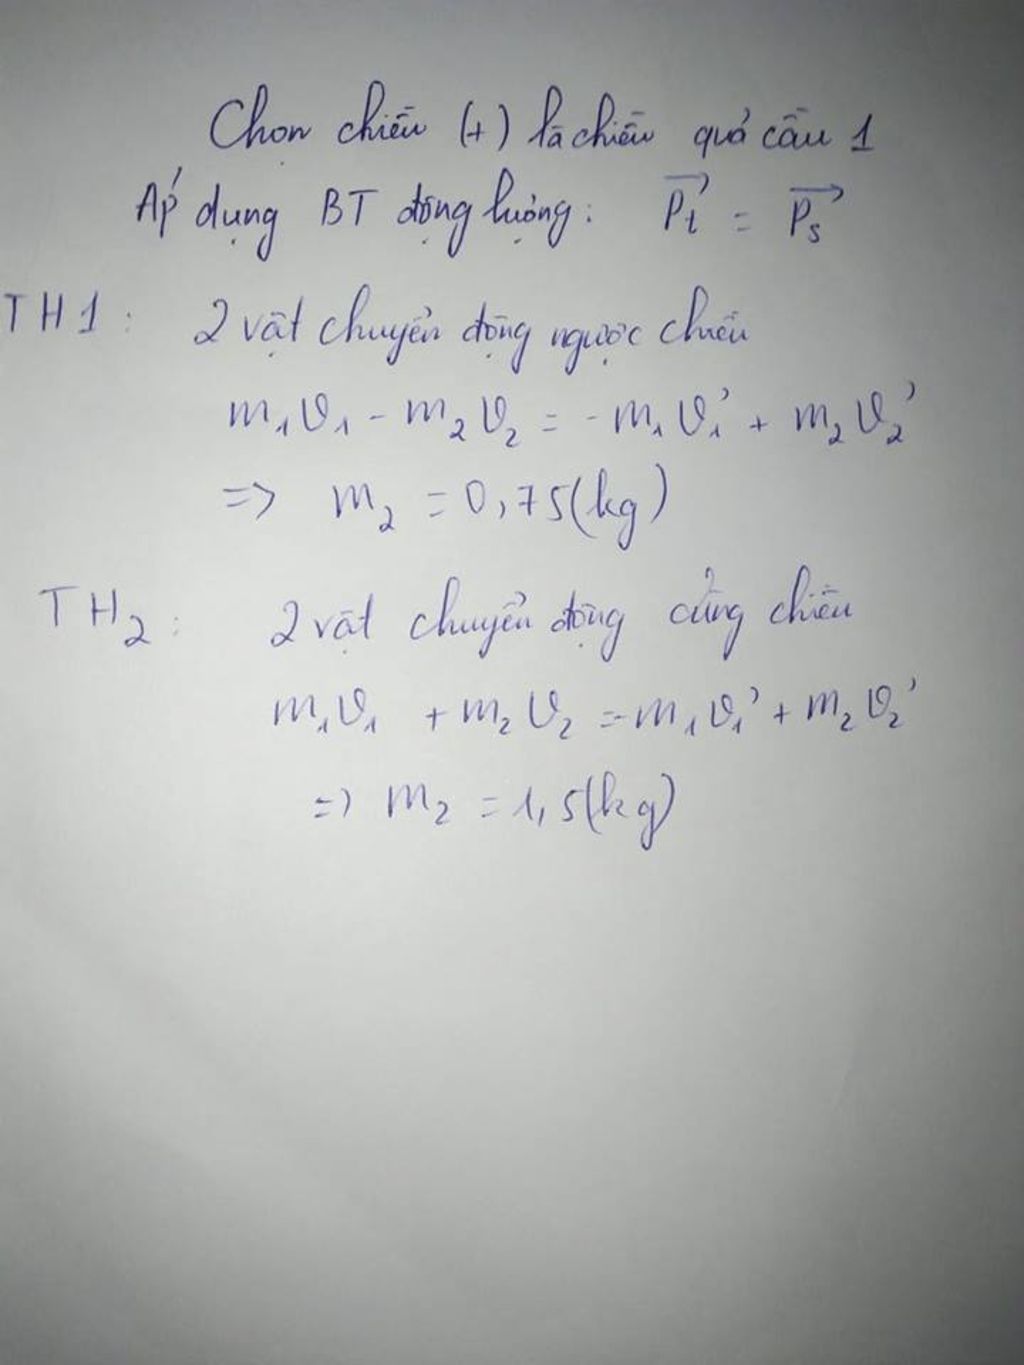 Chọn chiều (+) là chiều quả cầu 1
Áp dụng BT động lượng: Pt = Ps
TH1: 2 vật chuyển động ngược chiều
m₁v₁ - m₂v₂ = -m₁v₁' + m₂v₂'
=> m₂ = 0,75(kg)
TH2: 2 vật chuyển động cùng chiều
m₁v₁ + m₂v₂ = -m₁v₁' + m₂v₂'
=> m₂ = 1,5(kg)